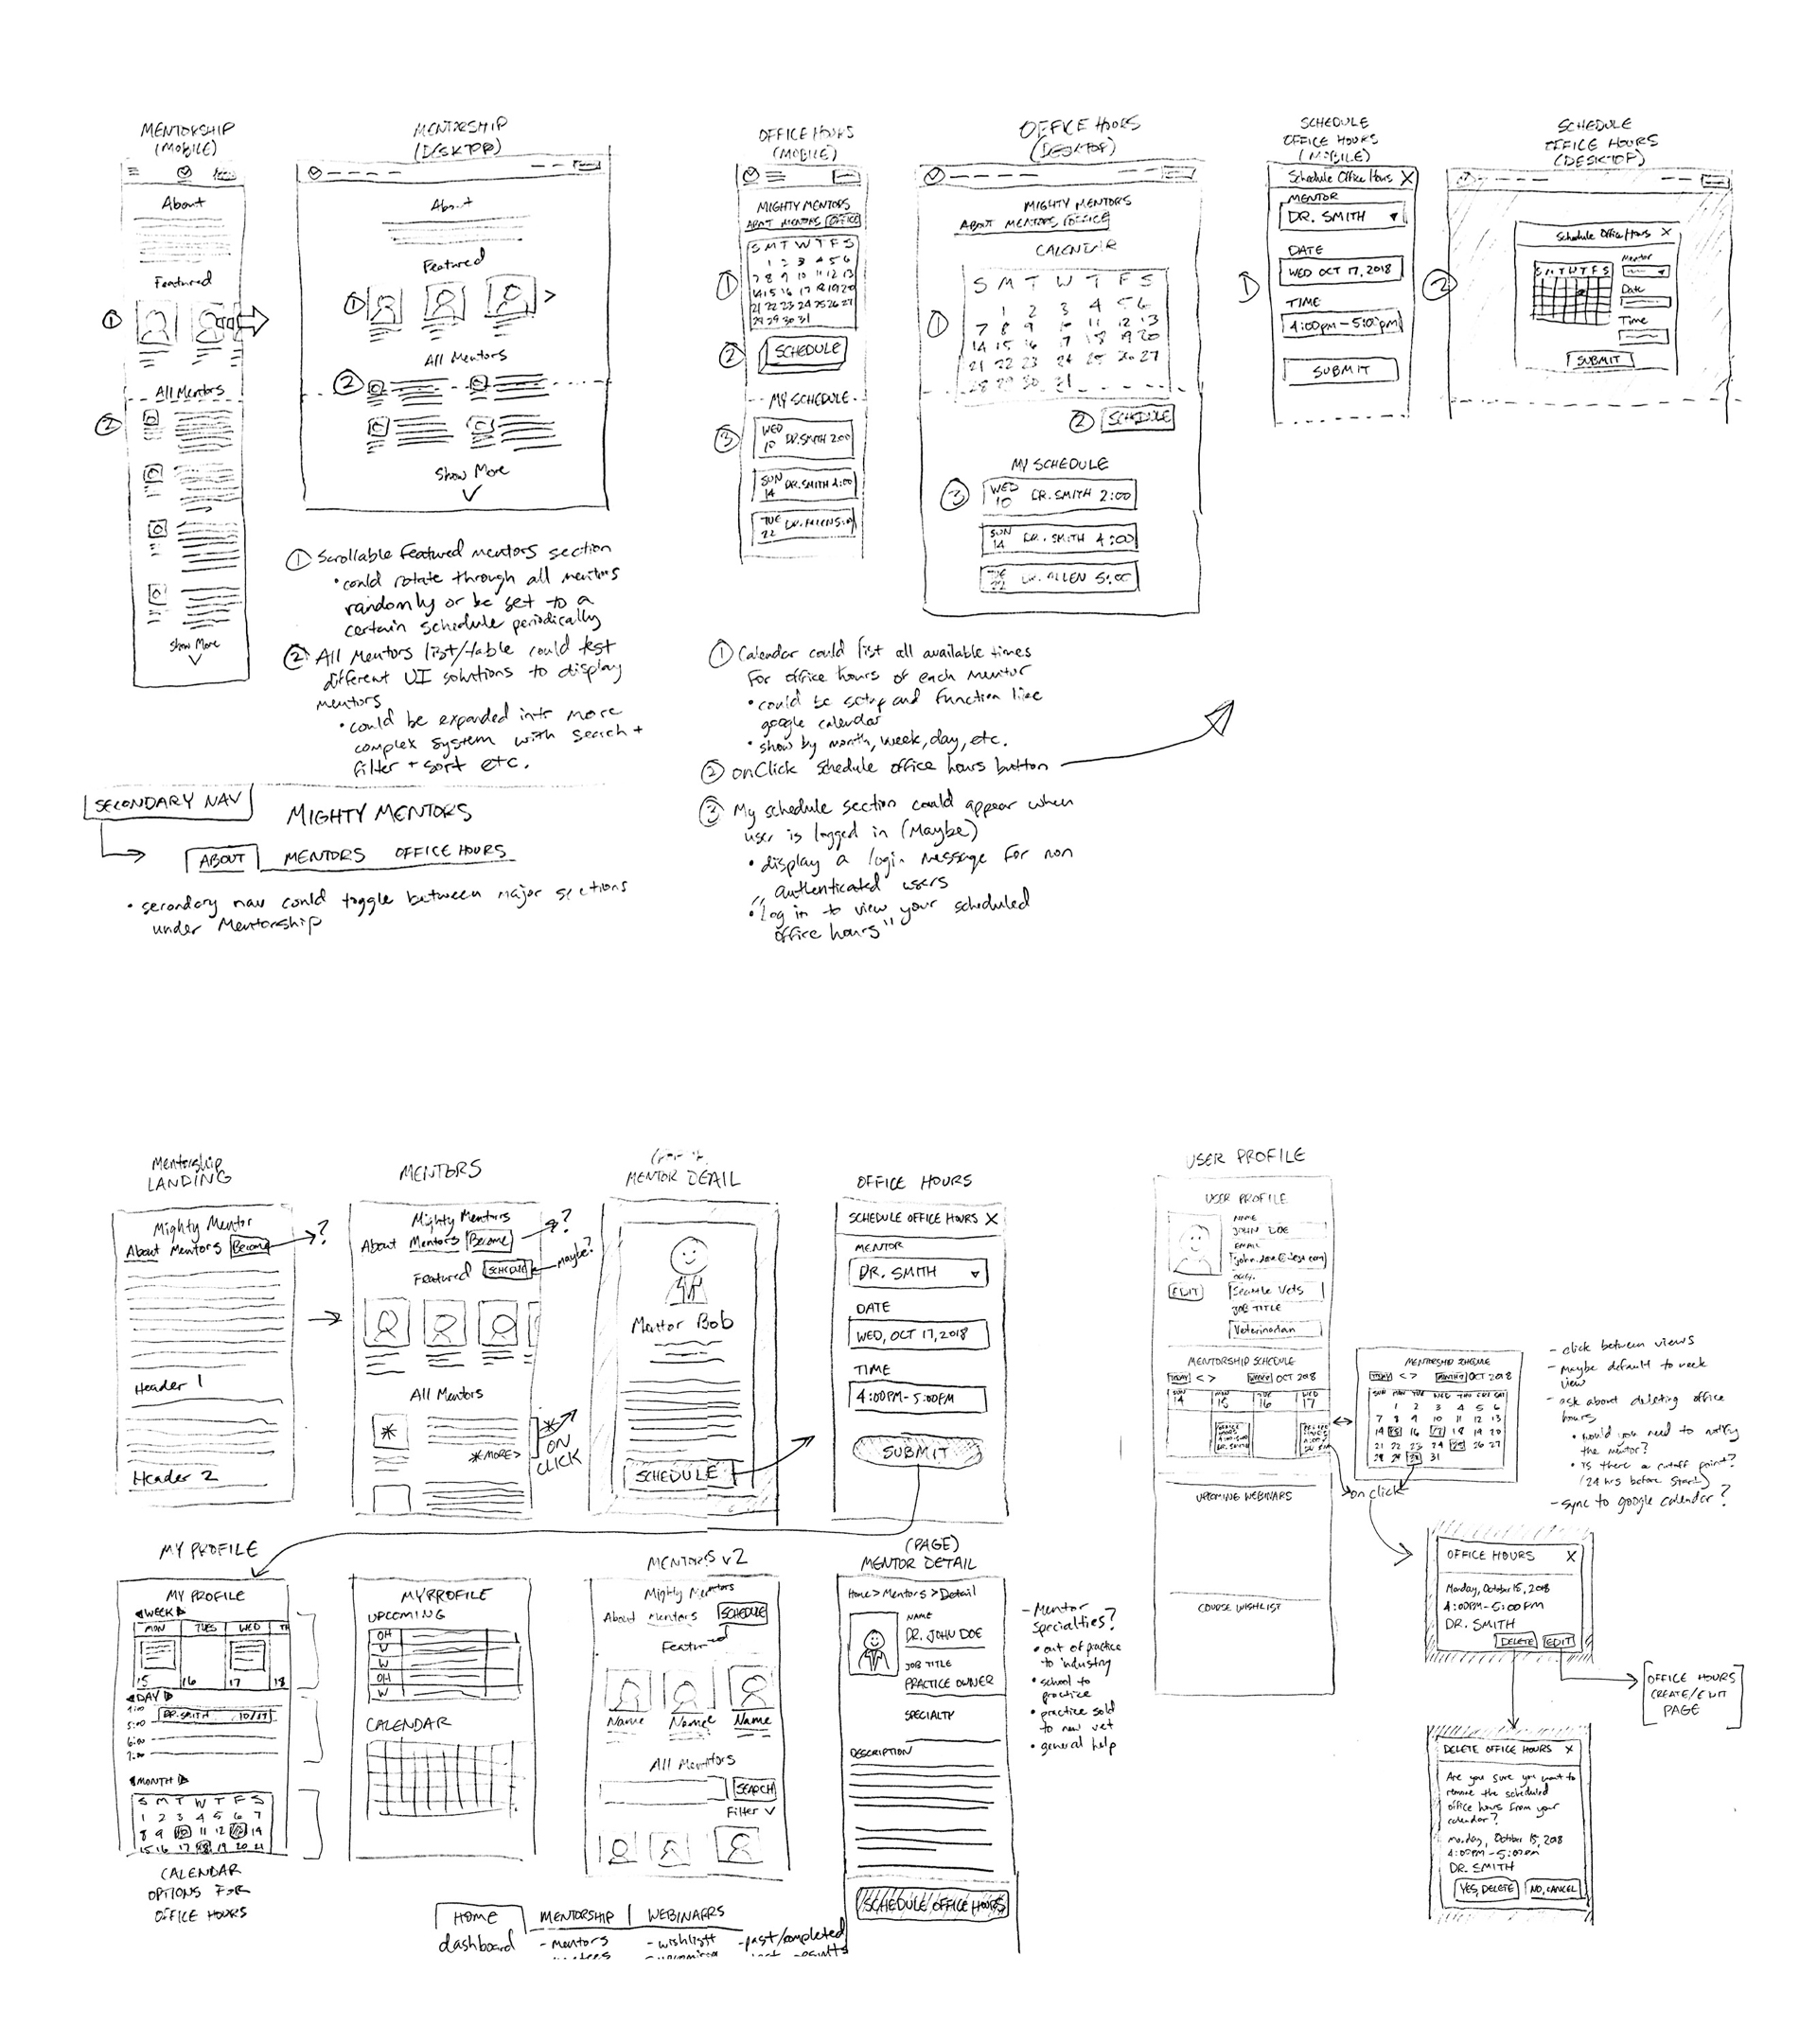 MENTORSHIP
(MOBILE)
About
Featured
①
All Mentors
②
Show More
MENTORSHIP
(DESKTOP)
About
Featured
①
All Mentors
②
Show More
① Scrollable featured mentors section
• could rotate through all mentors
randomly or be set to a
certain schedule periodically
② All Mentors list/table could test
different UI solutions to display
mentors
• could be expanded into more
complex system with search +
filter + sort etc.
SECONDARY NAV
MIGHTY MENTORS
ABOUT MENTORS OFFICE HOURS
• secondary nav could toggle between major sections
under Mentorship
OFFICE HOURS
(MOBILE)
MIGHTY MENTORS
ABOUT MENTORS OFFICE
S M T W T F S
1 2 3 4 5 6
7 8 9 10 11 12 13
14 15 16 17 18 19 20
21 22 23 24 25 26 27
29 29 30 31
①
② SCHEDULE
MY SCHEDULE
③
WED
10 DR. SMITH 2:00
SUN
14 DR. SMITH 4:00
TUE
22
OFFICE HOURS
(DESKTOP)
MIGHTY MENTORS
ABOUT MENTORS OFFICE
CALENDAR
S M T W T F S
1 2 3 4 5 6
7 8 9 10 11 12 13
14 15 16 17 18 19 20
21 22 23 24 25 26 27
28 29 30 31
①
② SCHEDULE
MY SCHEDULE
③
WED
10 DR. SMITH 2:00
SUN
14 DR. SMITH 4:00
TUE
22 DR. ALLEN 5:00
① Calendar could list all available times
for office hours of each mentor
• could be setup and function like
google calendar
• show by month, week, day, etc.
② onClick schedule office hours button
③ My schedule section could appear when
user is logged in (Maybe)
• display a login message for non
authenticated users
• "Log in to view your scheduled
office hours"
SCHEDULE
OFFICE HOURS
(MOBILE)
Schedule Office Hours X
MENTOR
DR. SMITH
DATE
WED OCT 17, 2018
①
TIME
4:00pm - 5:00pm
SUBMIT
SCHEDULE
OFFICE HOURS
(DESKTOP)
②
Schedule Office Hours X
S M T W T F S
Mentor
Date
Time
SUBMIT
Mentorship
LANDING
Mighty Mentor
About Mentors Become
?
Header 1
Header 2
MENTORS
Mighty Mentors
About Mentors Become
?
Featured SCHEDULE
Maybe?
All Mentors
*MORE>
* ON
CLICK
MENTOR DETAIL
Mentor Bob
SCHEDULE
OFFICE HOURS
SCHEDULE OFFICE HOURS X
MENTOR
DR. SMITH
DATE
WED, OCT 17, 2018
TIME
4:00PM - 5:00PM
SUBMIT
MY PROFILE
MY PROFILE
WEEK
MON TUES WED TH
15 16 17 18
DAY
DR. SMITH 10/17
5:00
6:00
7:00
MONTH
S M T W T F S
1 2 3 4 5 6 7
8 9 10 11 12 13 14
15 16 17 18 19 20 21
CALENDAR
OPTIONS FOR
OFFICE HOURS
MY PROFILE
UPCOMING
OH
W
W
OH
W
CALENDAR
MENTORS v2
Mighty Mentors
About Mentors SCHEDULE
Featured
Name Name Name
All Mentors
SEARCH
Filter
(PAGE)
MENTOR DETAIL
Home > Mentors > Detail
NAME
DR. JOHN DOE
JOB TITLE
PRACTICE OWNER
SPECIALTY
DESCRIPTION
SCHEDULE OFFICE HOURS
- Mentor
specialties?
• out of practice
to industry
• school to
practice
• practice sold
to new vet
• general help
HOME MENTORSHIP WEBINARRS
dashboard - mentors - wishlist - past/completed
USER PROFILE
USER PROFILE
NAME
JOHN DOE
EMAIL
john.doe@test.com
Seattle Vets
EDIT
JOB TITLE
Veterinarian
MENTORSHIP SCHEDULE
TODAY < > WEEKLY OCT 2018
SUN MON TUE WED
14 15 16 17
UPCOMING WEBINARS
COURSE WISHLIST
MENTORSHIP SCHEDULE
TODAY < > MONTHLY OCT 2018
SUN MON TUE WED THU FRI SAT
1 2 3 4 5 6
7 8 9 10 11 12 13
14 15 16 17 18 19 20
21 22 23 24 25 26 27
28 29 30 31
on click
- click between views
- maybe default to week
view
- ask about deleting office
hours
• would you need to notify
the mentor?
• is there a cutoff point?
(24 hrs before start)
- sync to google calendar?
OFFICE HOURS X
Monday, October 15, 2018
4:00PM - 5:00PM
DR. SMITH
DELETE EDIT
OFFICE HOURS
CREATE/EDIT
PAGE
DELETE OFFICE HOURS X
Are you sure you want to
remove the scheduled
office hours from your
calendar?
Monday, October 15, 2018
4:00PM - 5:00PM
DR. SMITH
YES, DELETE NO, CANCEL